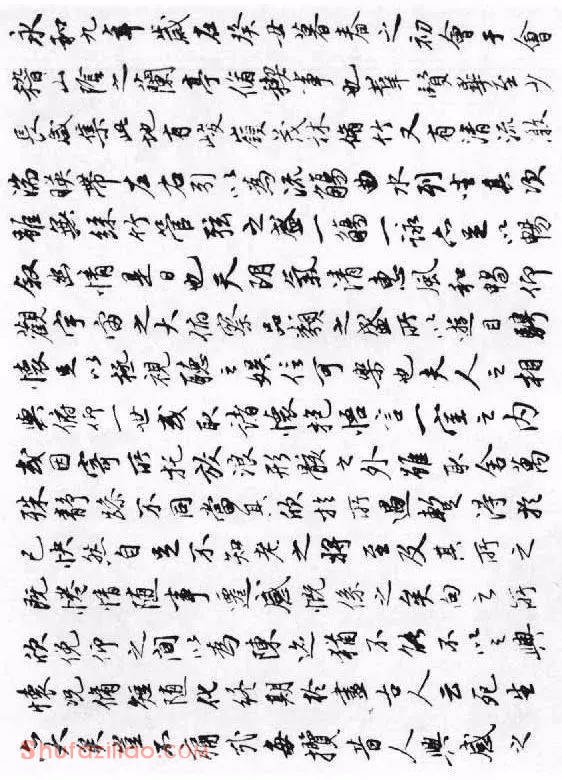 永和九年歲在癸丑暮春之初會于會
稽山陰之蘭亭脩禊事也群賢畢至少
長咸集此地有峻嶺茂林脩竹又有清流激
湍暎帶左右引以為流觴曲水列坐其次
雖無絲竹管弦之盛一觴一詠亦足以暢
敘幽情是日也天朗氣清惠風和暢仰
觀宇宙之大俯察品類之盛所以遊目騁
懷足以極視聽之娛信可樂也夫人之相
與俯仰一世或取諸懷抱悟言一室之內
或因寄所托放浪形骸之外雖取舍萬
殊靜躁不同當其欣於所遇暫得於
己怏然自足不知老之將至及其所之
既惓情隨事遷感慨係之矣向之所
欣俛仰之間以為陳迹猶不能不以之興
懷況脩短隨化終期於盡古人云死生
亦大矣豈不痛哉每攬昔人興感之
Shufaziliao.com